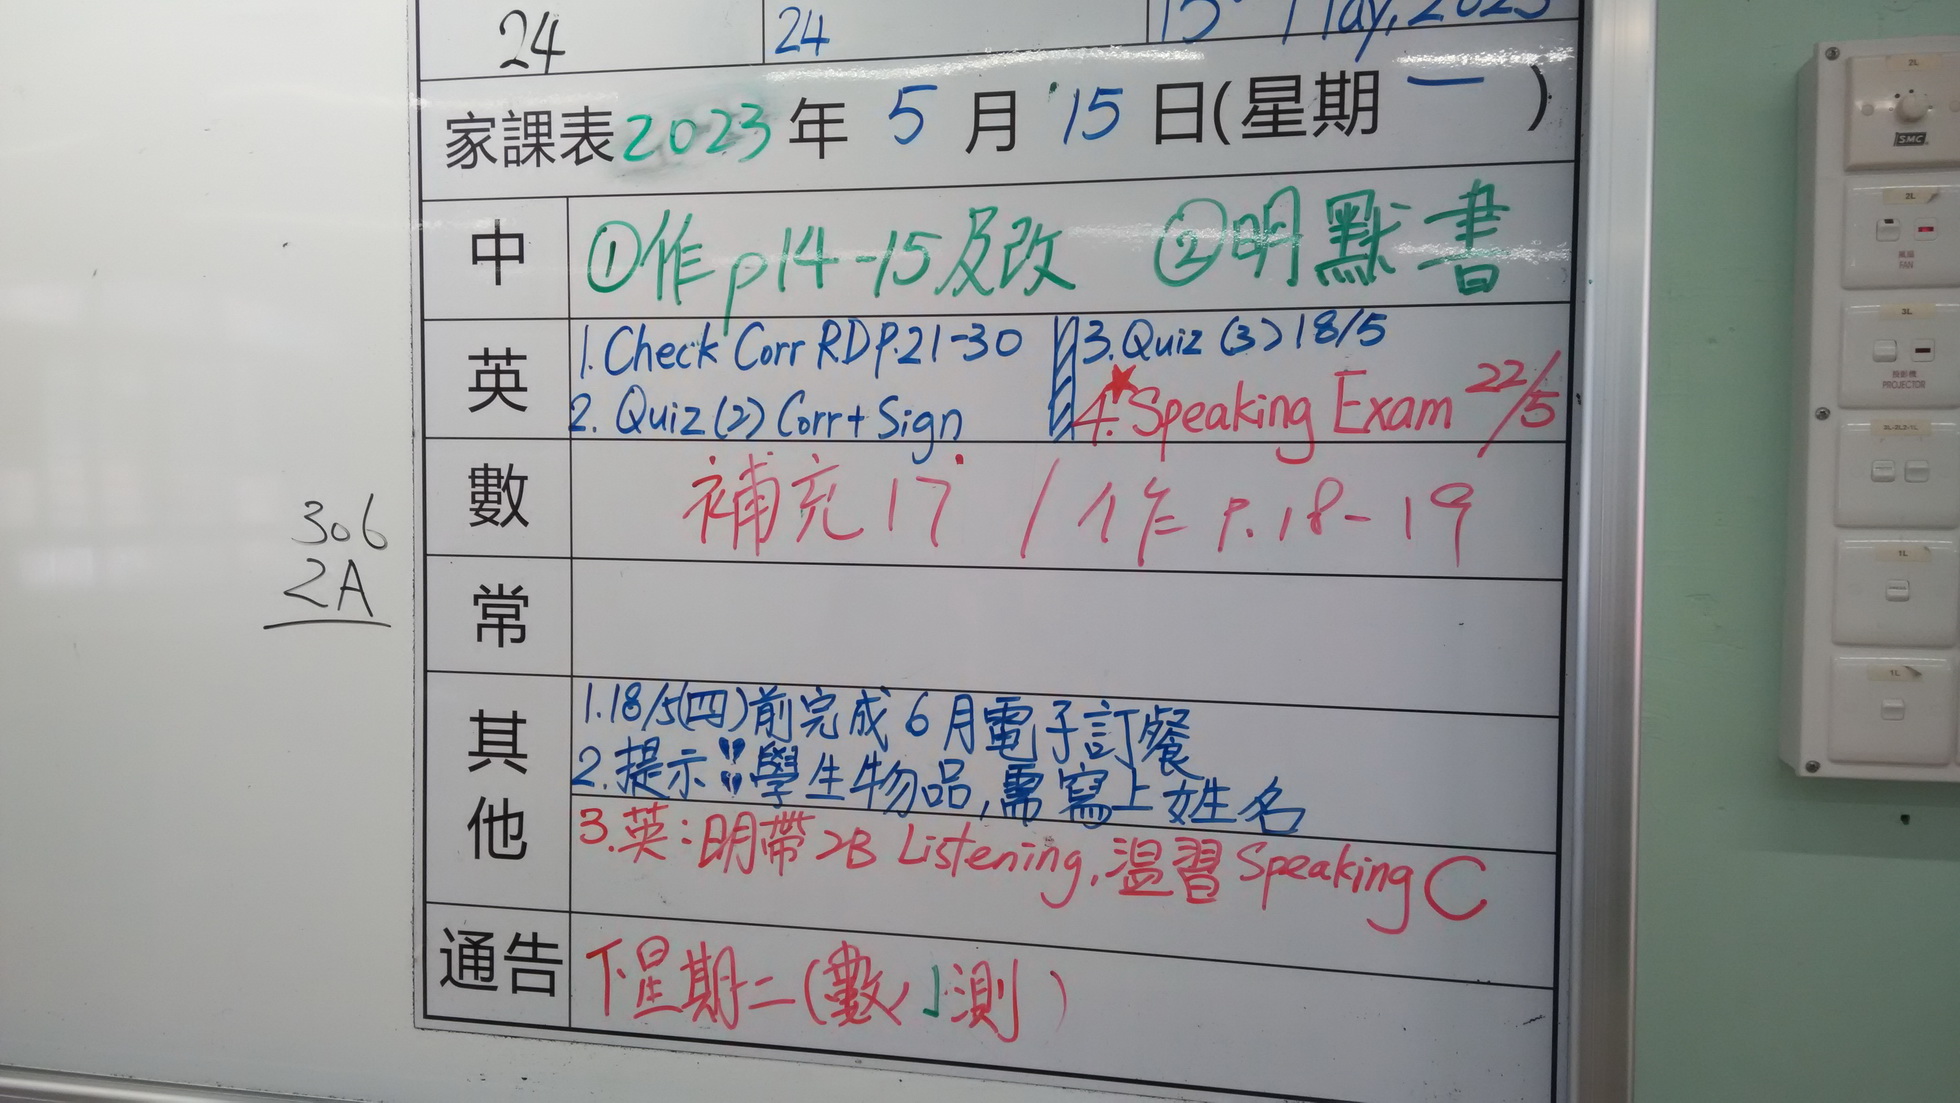 24
24
15 May, 2023
家課表2023年 5 月 15 日(星期 一 )
中
①作p14-15及改 ②明默書
英
1. Check Corr RD P.21-30
2. Quiz (2) Corr + Sign
3. Quiz (3) 18/5
4. Speaking Exam 22/5
數
補充17 / 作 P.18-19
常
其他
1. 18/5(四)前完成 6月電子訂餐
2. 提示!! 學生物品, 需寫上姓名
3. 英:明帶2B Listening, 温習 Speaking C
通告
下星期二(數小測)
306
2A
2L
SMC
2L
風扇
FAN
3L
投影機
PROJECTOR
2L-2L2-1L
1L
1L